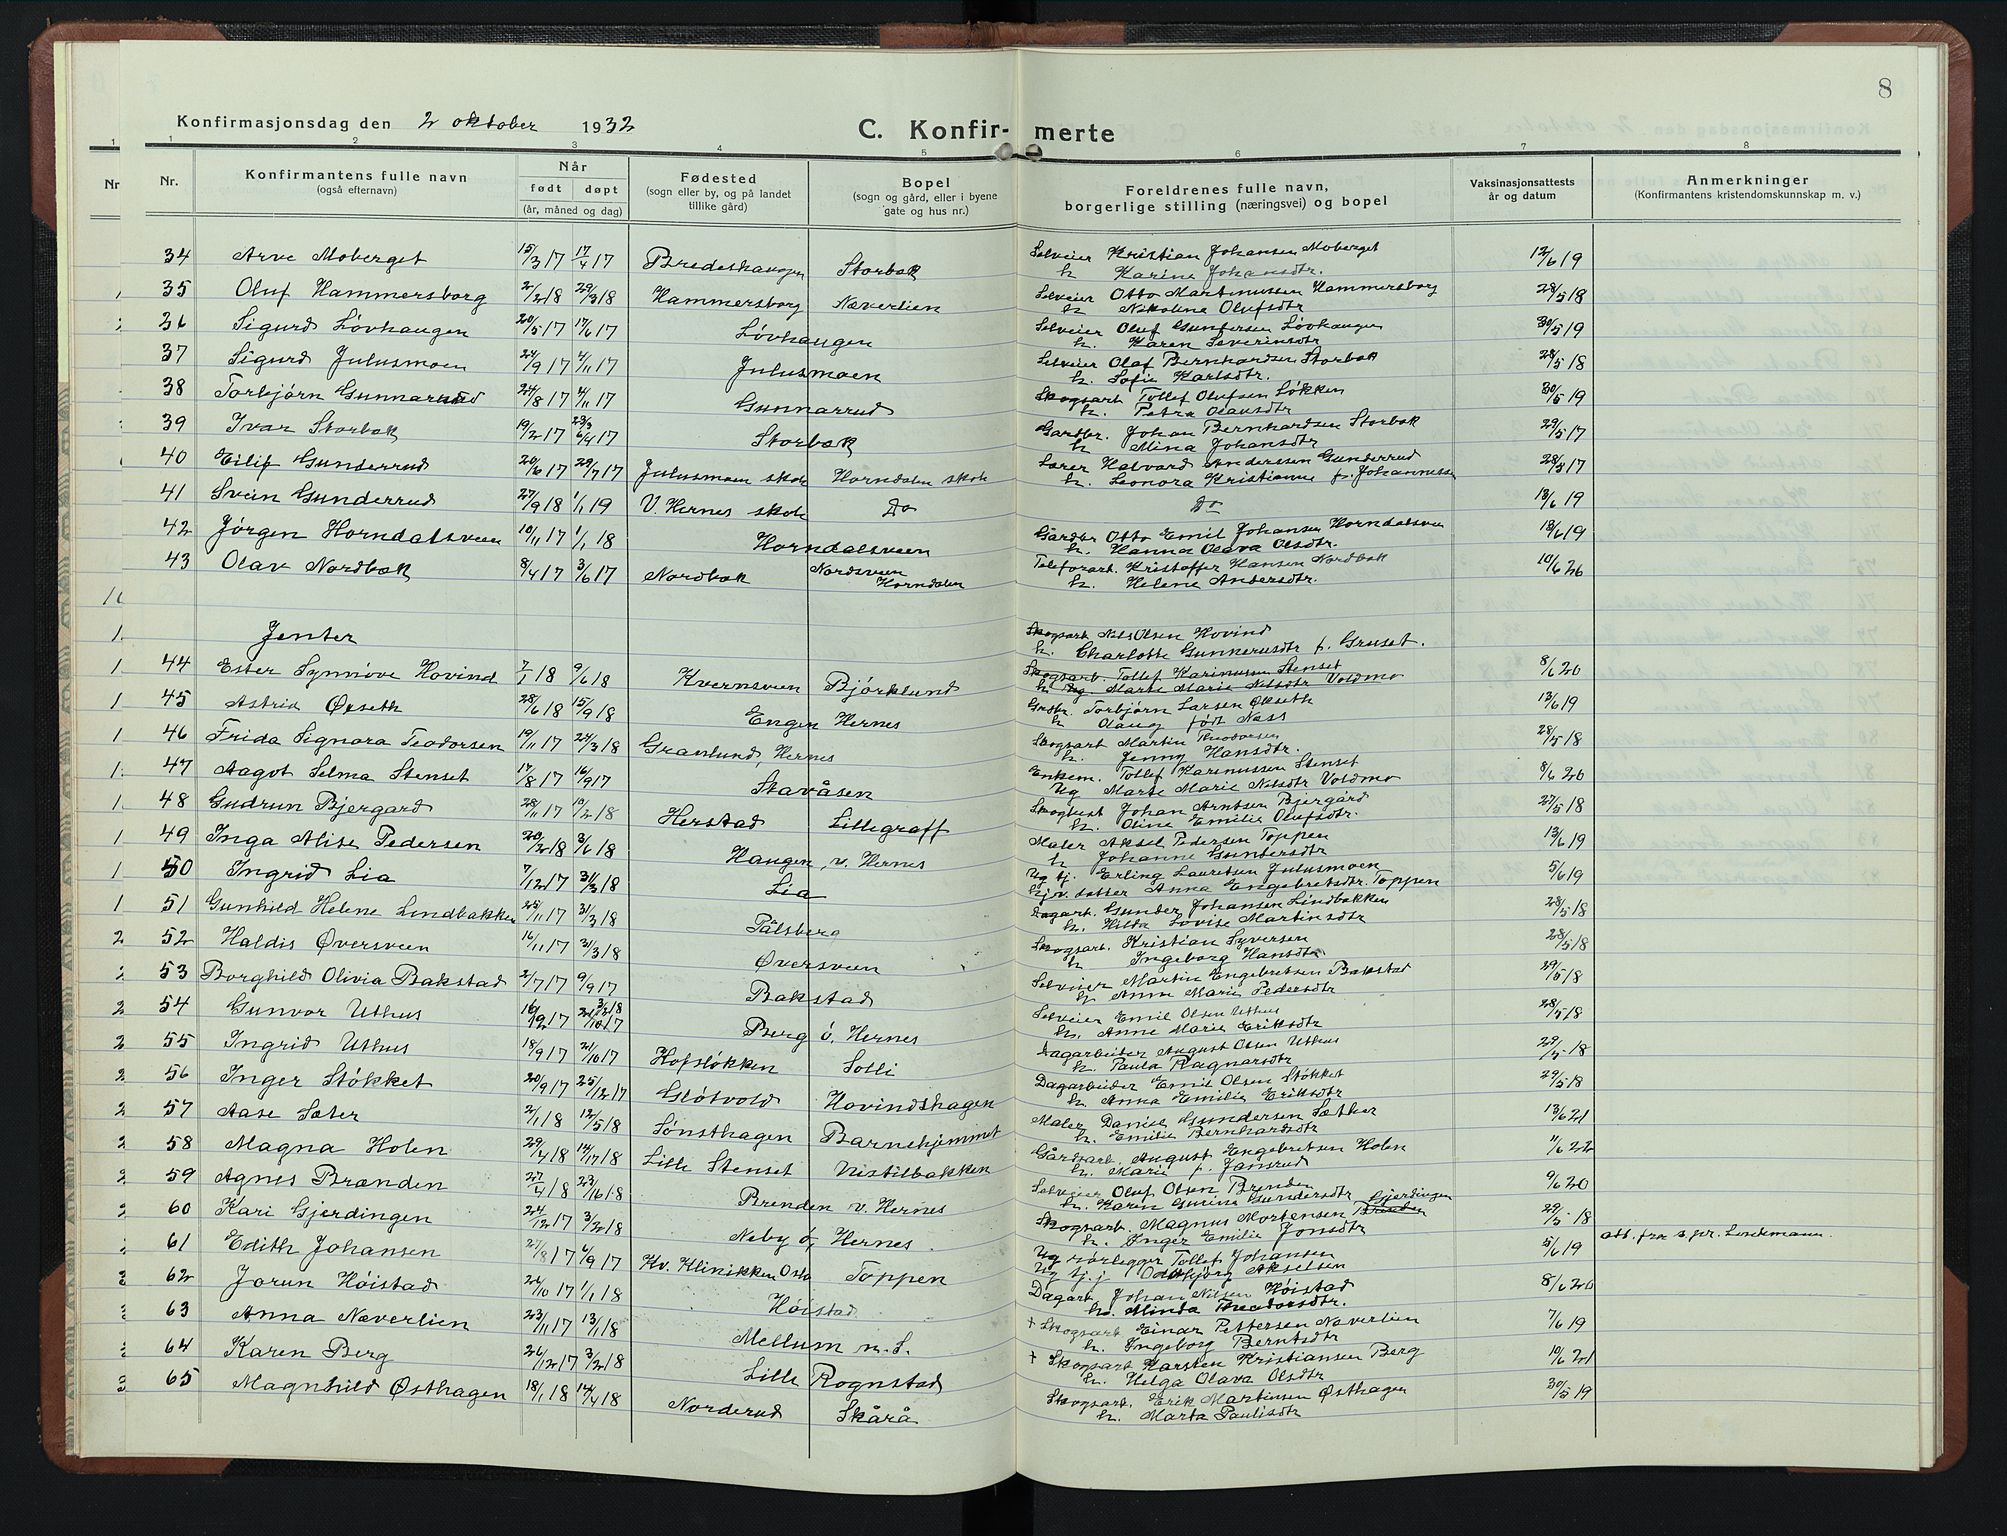 8
Konfirmasjonsdag den 2 oktober 1932
C. Konfir- merte
1 2 3 4 5 6 7 8
Nr. Konfirmantens fulle navn (også efternavn) Når født døpt (år, måned og dag) Fødested (sogn eller by, og på landet tillike gård) Bopel (sogn og gård, eller i byene gate og hus nr.) Foreldrenes fulle navn, borgerlige stilling (næringsvei) og bopel Vaksinasjonsattests år og datum Anmerkninger (Konfirmantens kristendomskunnskap m. v.)
34 Arve Moberget 15/3 17 17/4 17 Bredeshaugen Storbak Selveier Kristian Johansen Moberget 12/6 19
h. Karine Johansdtr.
35 Oluf Hammersborg 2/2 18 29/3 18 Hammersborg Næverlien Selveier Otto Martinussen Hammersborg 28/5 18
h. Nikoline Olufsdtr
36 Sigurd Løvhaugen 20/5 17 17/6 17 Løvhaugen Selveier Oluf Gundersen Løvhaugen 30/5 19
h. Karen Severinsdtr
37 Sigurd Julusmoen 24/9 17 4/11 17 Julusmoen Selveier Olaf Bernhardsen Storbak 28/5 18
h. Sofie Karlsdtr.
38 Torbjørn Gunnarrud 24/8 17 4/11 17 Gunnarrud Skogsarb Tollef Olufsen Løkken 30/5 19
h. Petra Olavsdtr
39 Ivar Storbak 19/2 17 23/3 6/4 17 Storbak Gardbr. Johan Bernhardsen Storbak 29/5 17
h. Mina Johansdtr
40 Eilif Gunderrud 20/6 17 29/7 17 Julusmoen skole Horndalen skole Lærer Halvard Anderssen Gunderrud 28/8 17
h. Leonora Kristianne f. Johannessen
41 Svein Gunderrud 27/9 18 1/1 19 V. Hernes skole Do Do 13/6 19
42 Jørgen Horndalsveen 10/11 17 1/1 18 Horndalsveen Gårdbr Otto Emil Johansen Horndalsveen 18/6 19
h. Hanna Olava Olsdtr.
43 Olav Nordbak 8/4 17 3/6 17 Nordbak Nordsveen Horndalen Teleforarb. Kristoffer Hansen Nordbak 10/6 26
h. Helene Andersdtr.
Jenter
Skogsarb Nils Olsen Hovind
h. Charlotte Gunnerusdtr f. Gruset.
44 Ester Synnøve Hovind 7/1 18 9/6 18 Kvernsveen Bjørklund Skogsarb. Tollef Karinusen Stenset 8/6 20
h Ug. Marte Marie Nilsdtr Voldmo
45 Astrid Økseth 28/6 18 15/9 18 Engen Hernes Grdbr. Torbjørn Larsen Økseth 13/6 19
h Olaug født Næss
46 Frida Signora Teodorsen 19/11 17 24/3 18 Granlund, Hernes Skogsarb Martin Theodorsen 28/5 18
h. Jenny Hansdtr.
47 Aagot Selma Stenset 17/8 17 16/9 17 Stavåsen Enkem. Tollef Karinussen Stenset 8/6 20
Ug Marte Marie Nilsdtr Voldmo
48 Gudrun Bjergård 28/11 17 19/2 18 Herstad Lillegraff Skogbest Johan Arntsen Bjergård 27/5 18
h. Oline Emilie Olufsdtr.
49 Inga Alise Pedersen 20/2 18 3/6 18 Haugen, v. Hernes Maler Aksel Pedersen Toppen 13/6 19
h Johanne Gundersdtr
50 Ingrid Lia 7/12 17 31/3 18 Lia Ug tj. Erling Lauretsen Julusmoen 5/6 19
hjv. datter Anna Engebretsdtr. Toppen
51 Gunhild Helene Lindbakken 25/11 17 31/3 18 Pålsberg Dagarb. Gunder Johansen Lindbakken 28/5 18
h. Hilda Lovise Martinsdtr
52 Haldis Øversveen 16/11 17 31/3 18 Øversveen Skogsarb. Kristian Syversen 28/5 18
h Ingeborg Hansdtr
53 Borghild Olivia Bakstad 2/7 17 9/9 17 Bakstad Selveier Martin Engebretsen Bakstad 29/5 18
h Anne Marie Pedersdtr
54 Gunvor Uthus 16/12 17 3/2 18 21/10 17 Berg ö. Hernes Selveier Emil Olsen Uthus 28/5 18
h. Anne Marie Eriksdtr
55 Ingrid Uthus 18/9 17 21/10 17 Hofsløkken Solli Dagarbeider August Olsen Uthus 29/5 18
h. Paula Ragnarsdtr
56 Inger Støkket 20/9 17 25/12 17 Gløtvold Hovindshagen Dagarbeider Emil Olsen Støkket 29/5 18
h. Anna Emilie Eriksdtr
57 Aase Sæter 2/1 18 12/5 18 Sønsthagen Barnehjemmet Maler Daniel Gundersen Sæther 13/6 21
h. Emilie Bernhardsdtr
58 Magna Holen 29/4 18 14/7 18 Lille Stenset Kistilbakken Gårdsarb. August Engebretsen Holen 11/6 22
h. Marie f. Jansrud
59 Agnes Brænden 27/4 18 23/6 18 Brenden v. Hernes Selveier Oluf Olsen Brenden 9/6 20
h. Karen Gurine Gundersdtr
60 Kari Gjerdingen 24/12 17 3/2 18 Neby ö, Hernes Skogsarb. Magnus Mortensen Brenden Gjerdingen 29/5 18
h. Inger Emilie Jonsdtr
61 Edith Johansen 27/8 17 6/9 17 Kv. Klinikken Oslo Toppen Ug rørlegger Tollef Johansen 5/6 19 att. fra s.pr. Lindemann.
Ug tj.j Oddbjörg Akselsen
62 Jorun Høistad 24/10 17 1/1 18 Høistad Dagarb. Johan Nilsen Høistad 8/6 20
h. Minda Theodorsdtr.
63 Anna Næverlien 23/11 17 13/1 18 Mellum m. L. † Skogsarb Einar Pettersen Næverlien 7/6 19
h. Ingeborg Berntsdtr
64 Karen Berg 26/12 17 3/2 18 Lille Rognstad † Skogsarb Karsten Kristiansen Berg 10/6 21
h. Helga Olava Olsdtr
65 Magnhild Østhagen 18/1 18 14/4 18 Norderud Skårå Skogsarb. Erik Martinsen Østhagen 30/5 19
h. Marta Paulsdtr